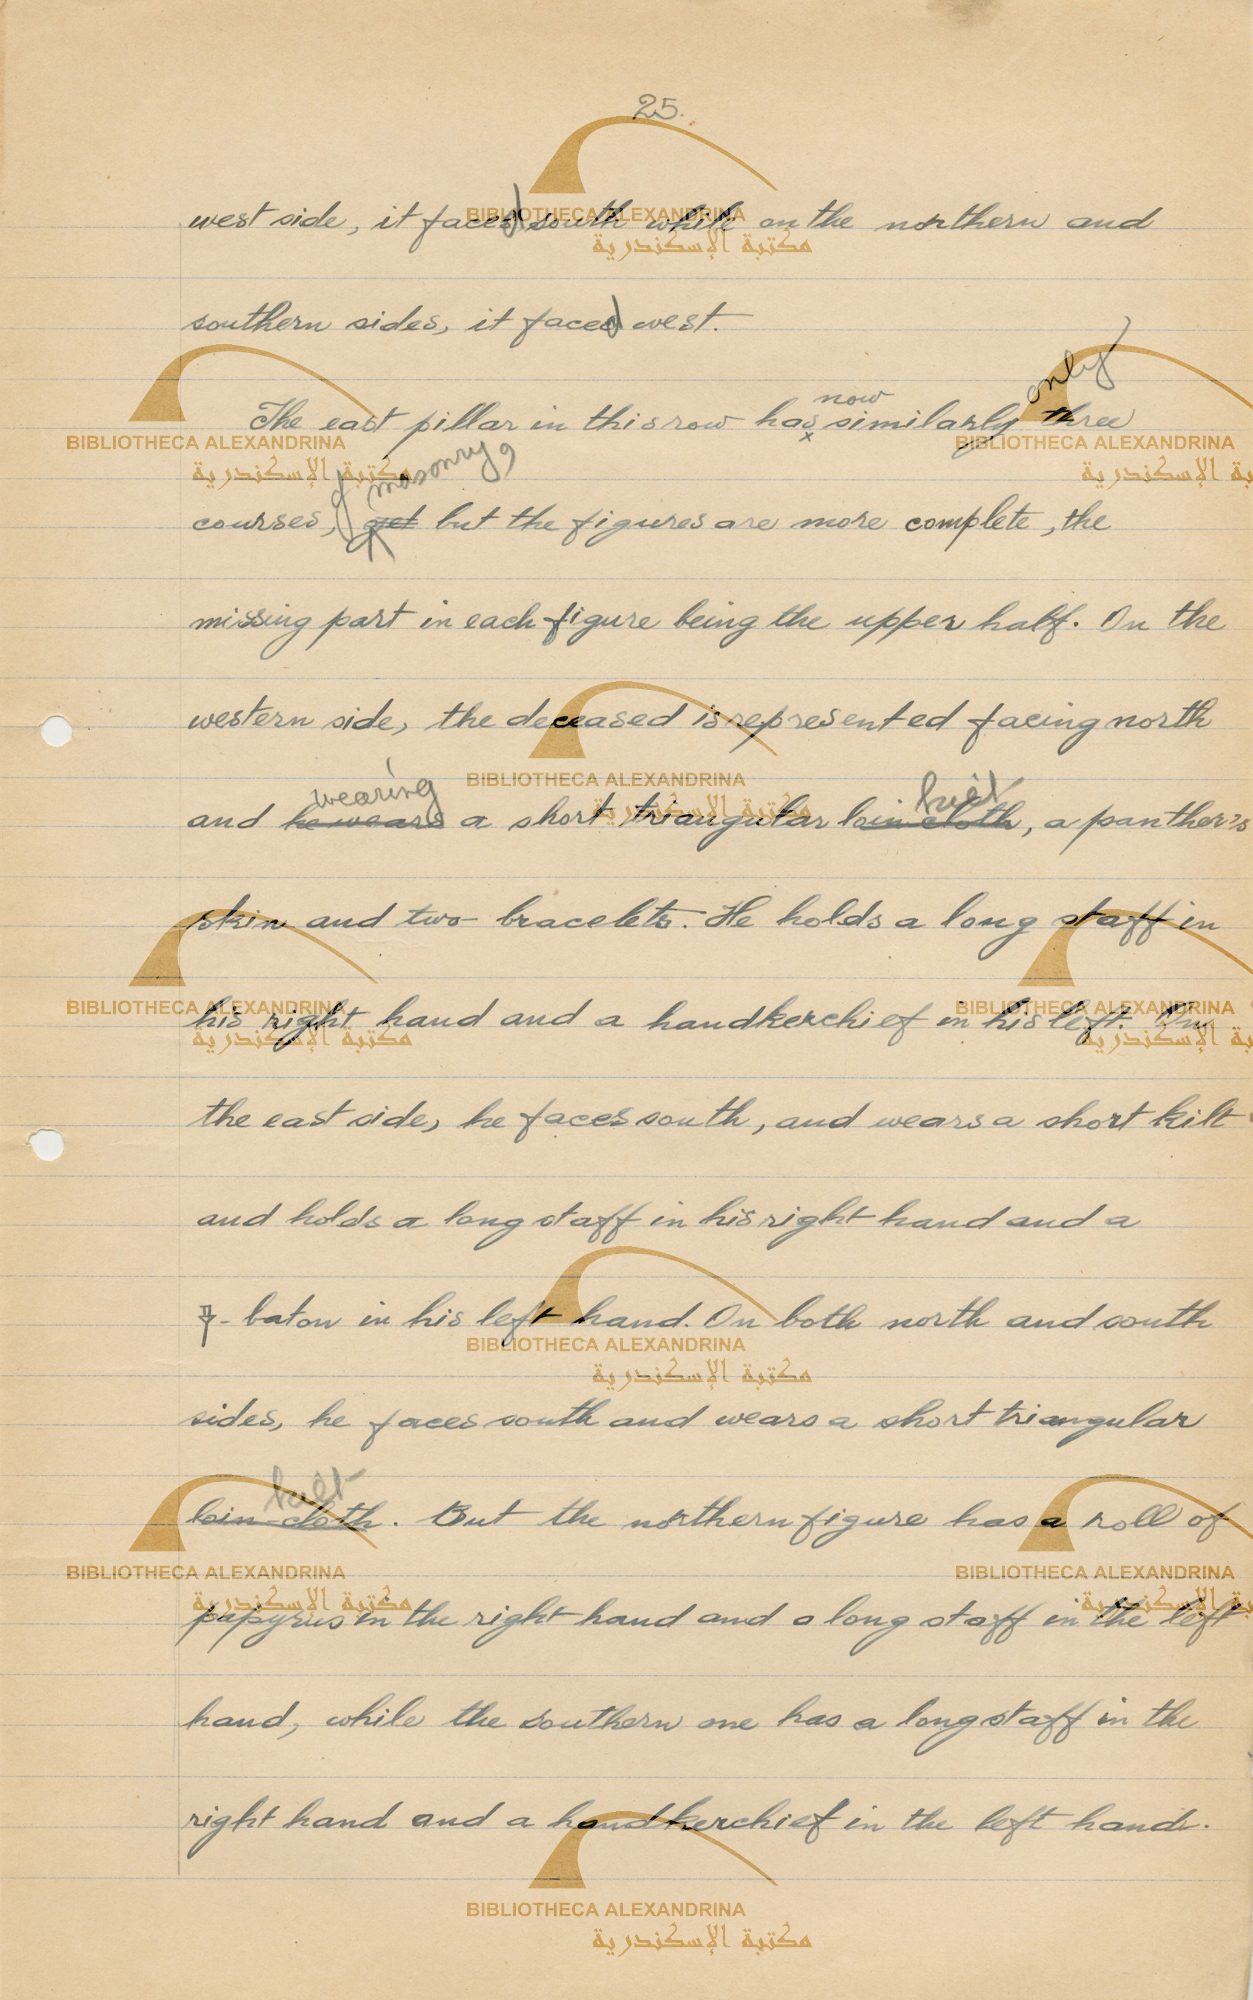 25.
west side, it faced south while on the northern and
southern sides, it faced west.
only
now
The east pillar in this row has similarly three
of masonry,
courses, yet but the figures are more complete, the
missing part in each figure being the upper half. On the
western side, the deceased is represented facing north
wearing kilt
and he wears a short triangular loin cloth, a panther's
skin and two bracelets. He holds a long staff in
his right hand and a handkerchief in his left. On
the east side, he faces south, and wears a short kilt
and holds a long staff in his right hand and a
- baton in his left hand. On both north and south
sides, he faces south and wears a short triangular
kilt
loin-cloth. But the northern figure has a roll of
papyrus in the right hand and a long staff in the left
hand, while the southern one has a long staff in the
right hand and a handkerchief in the left hand.
BIBLIOTHECA ALEXANDRINA
مكتبة الإسكندرية
BIBLIOTHECA ALEXANDRINA
مكتبة الإسكندرية
BIBLIOTHECA ALEXANDRINA
مكتبة الإسكندرية
BIBLIOTHECA ALEXANDRINA
مكتبة الإسكندرية
BIBLIOTHECA ALEXANDRINA
مكتبة الإسكندرية
BIBLIOTHECA ALEXANDRINA
مكتبة الإسكندرية
BIBLIOTHECA ALEXANDRINA
مكتبة الإسكندرية
BIBLIOTHECA ALEXANDRINA
مكتبة الإسكندرية
BIBLIOTHECA ALEXANDRINA
مكتبة الإسكندرية
BIBLIOTHECA ALEXANDRINA
مكتبة الإسكندرية